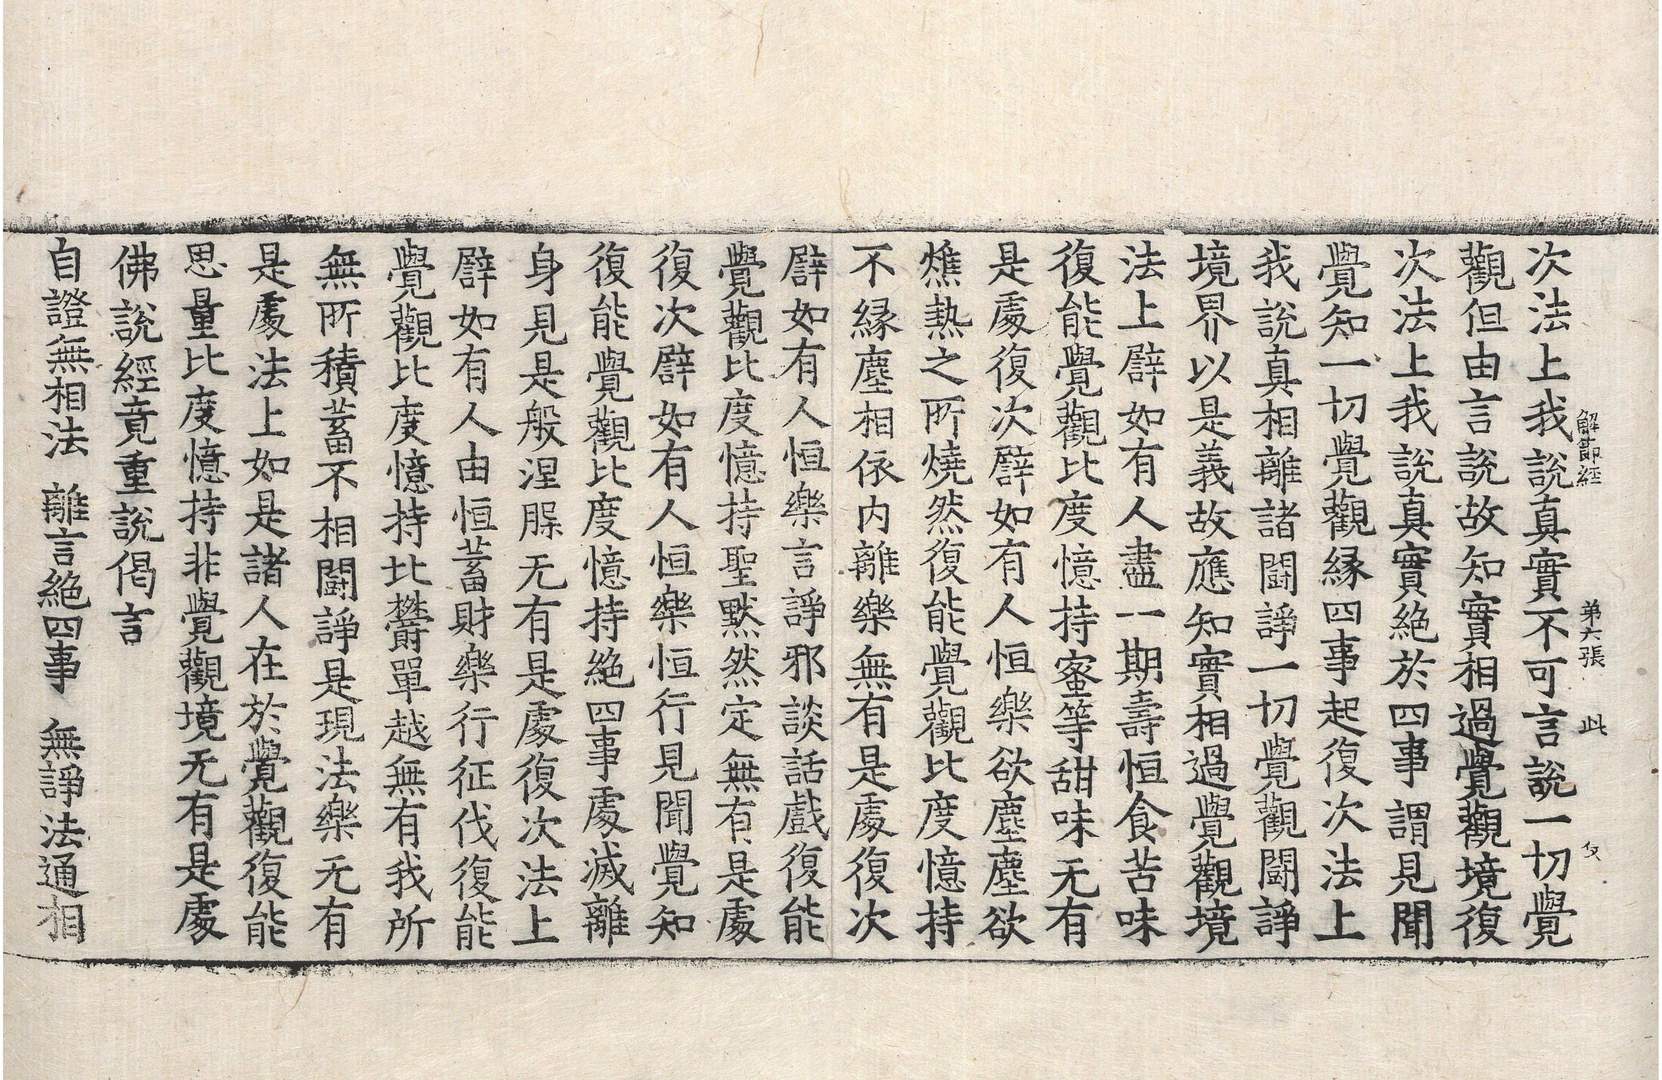 解節經 第六張 此
次法上我說真實不可言說一切覺
觀但由言說故知實相過覺觀境復
次法上我說真實絶於四事謂見聞
覺知一切覺觀縁四事起復次法上
我說真相離諸闘諍一切覺觀闘諍
境界以是義故應知實相過覺觀境
法上譬如有人盡一期壽恒食苦味
復能覺觀比度憶持蜜等甜味无有
是處復次譬如有人恒樂欲塵塵欲
燋熱之所燒然復能覺觀比度憶持
不縁塵相依内離樂無有是處復次
譬如有人恒樂言諍邪談話戲復能
覺觀比度憶持聖默然定無有是處
復次譬如有人恒樂恒行見聞覺知
復能覺觀比度憶持絶四事處滅離
身見是般涅槃无有是處復次法上
譬如有人由恒蓄財樂行征伐復能
覺觀比度憶持比欝單越無有我所
無所積蓄不相闘諍是現法樂无有
是處法上如是諸人在於覺觀復能
思量比度憶持非覺觀境无有是處
佛說經竟重說偈言
自證無相法 離言絶四事 無諍法通相